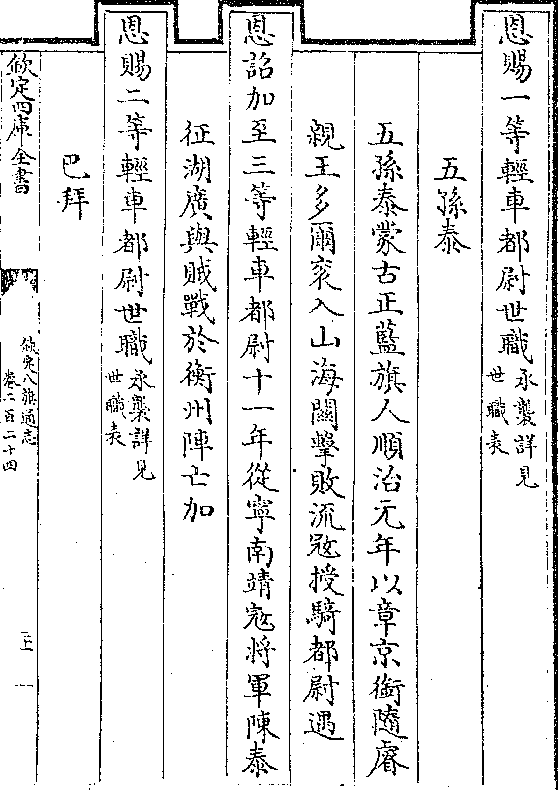 恩賜一等輕車都尉世職承襲詳見世職表
五孫泰
五孫泰蒙古正藍旗人順治元年以章京銜隨睿
親王多爾衮入山海關擊敗流冦授騎都尉遇
恩詔加至三等輕車都尉十一年從寧南靖冦將軍陳泰
征湖廣與賊戰於衡州陣亡加
恩賜二等輕車都尉世職承襲詳見世職表
巴拜
欽定四庫全書
欽定八旗通志
卷二百二十四